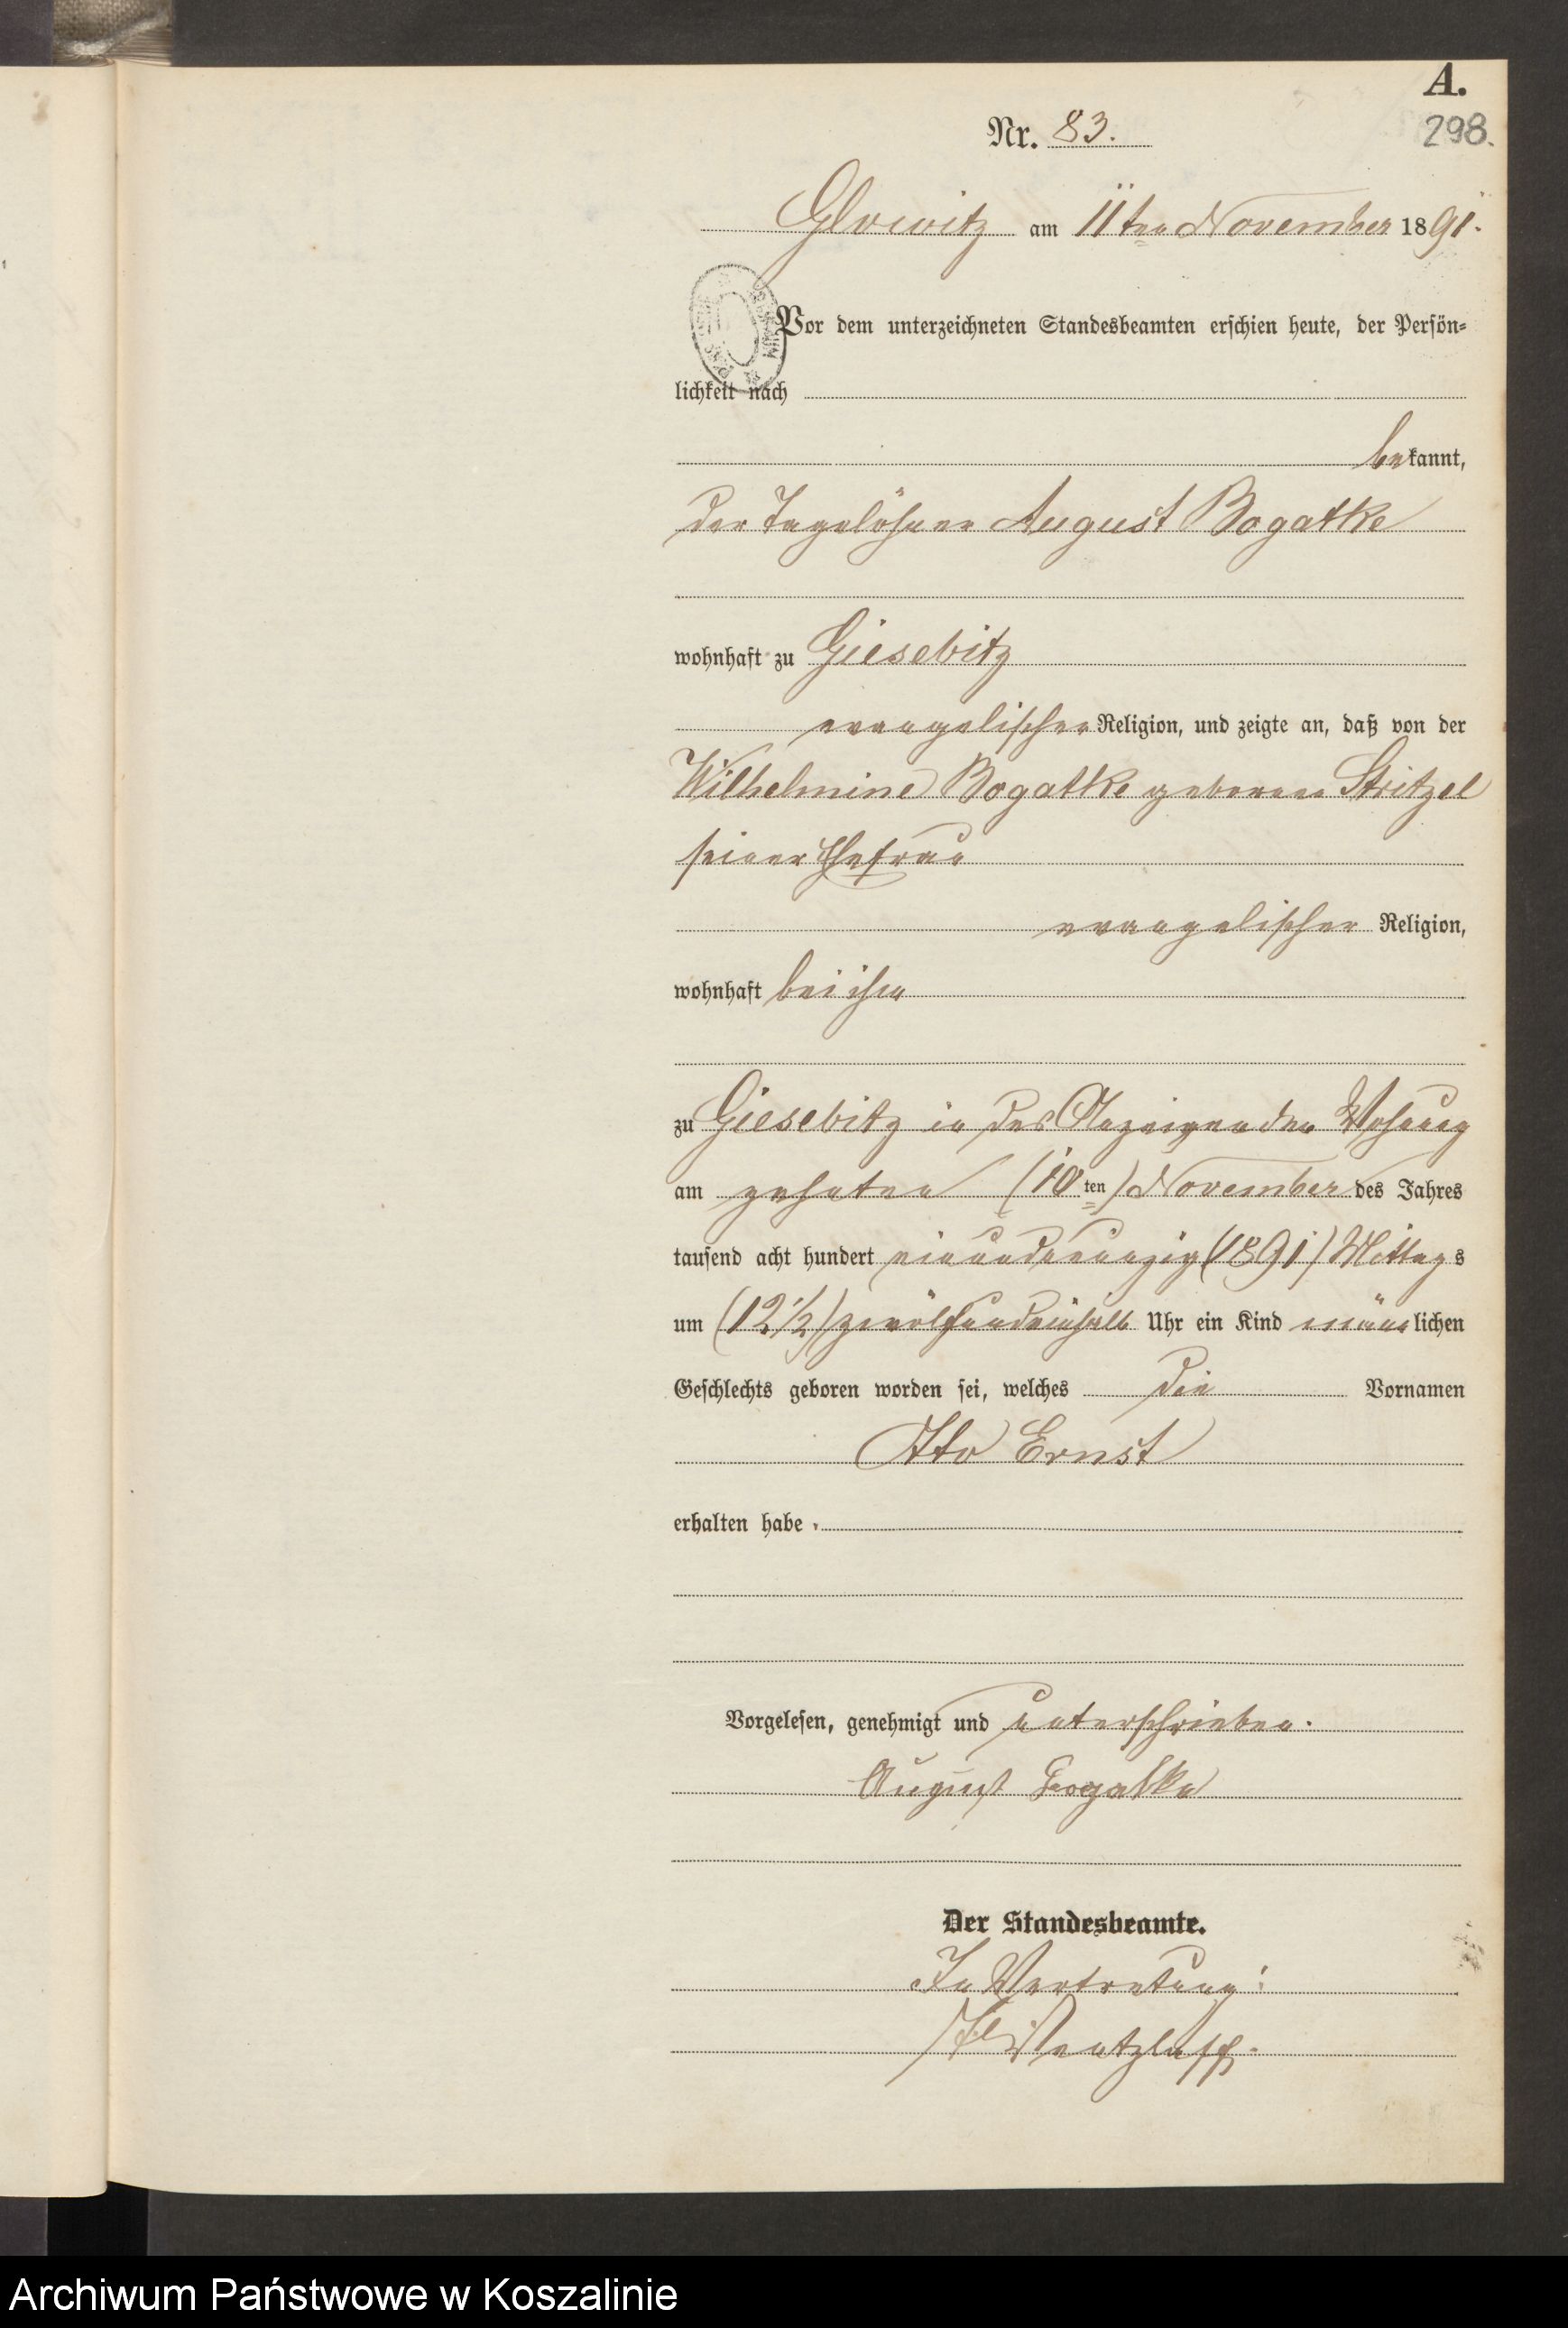 A.
298.
Nr. 83.
Glowitz am 11ten November 1891.
Vor dem unterzeichneten Standesbeamten erschien heute, der Persön-
lichkeit nach
bekannt,
der Tagelöhner August Bogatke
wohnhaft zu Giesebitz
evangelischer Religion, und zeigte an, daß von der
Wilhelmine Bogatke geborene Stritzel
seiner Ehefrau
evangelischer Religion,
wohnhaft bei ihm
zu Giesebitz in des Anzeigenden Wohnung
am zehnten (10ten) November des Jahres
tausend acht hundert einundneunzig (1891) Mittags
um (12 1/2) zwölfundeinhalb Uhr ein Kind männlichen
Geschlechts geboren worden sei, welches die Vornamen
Otto Ernst
erhalten habe.
Vorgelesen, genehmigt und unterschrieben.
August Bogatke
Der Standesbeamte.
In Vertretung:
Wentzlaff.
Archiwum Państwowe w Koszalinie